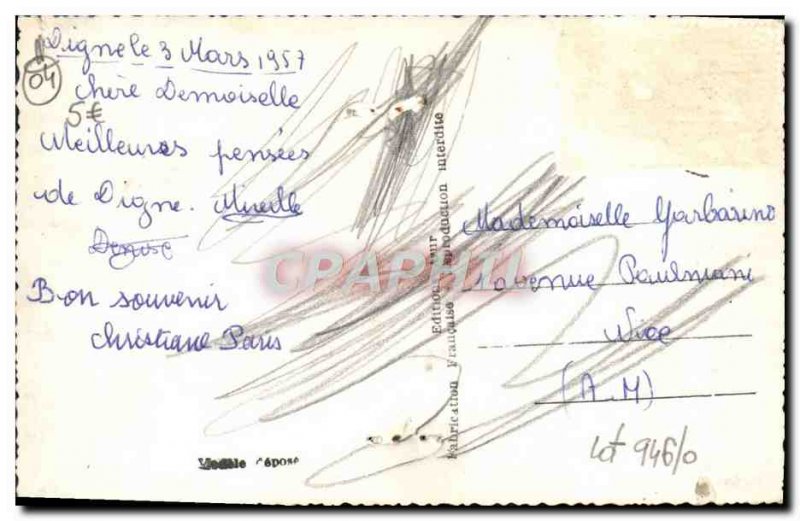 Digne le 3 Mars 1957
04
Chère Demoiselle
5€
Meilleures pensées
de Digne. Mireille
Denise
Bon souvenir
Christiane Paris
Modèle déposé
Fabrication Française Reproduction interdite
CPAPHIL
Mademoiselle Garbarino
avenue
Nice
(A.M)
lot 946/0